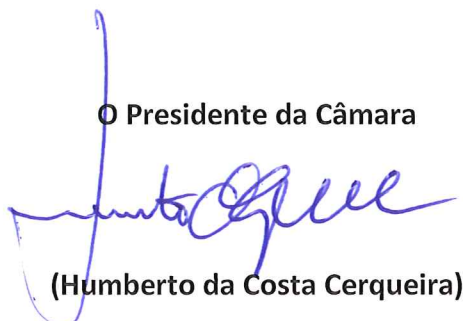 O Presidente da Câmara
(Humberto da Costa Cerqueira)